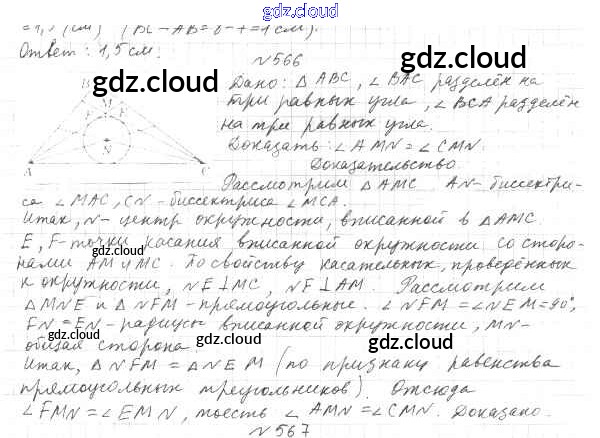 gdz.cloud
= 1,5 (см) (BC - AB = 8 - 7 = 1 см).
Ответ: 1,5 см.
gdz.cloud
№566
gdz.cloud
Дано: △ABC, ∠BAC разделён на
три равных угла, ∠BCA разделён
на три равных угла.
Доказать: ∠AMN = ∠CMN.
Доказательство
B M F E N A C
Рассмотрим △AMC. AN - биссектри-
са ∠MAC, CN - биссектриса ∠MCA.
Итак, N - центр окружности, вписанной в △AMC.
E, F - точки касания вписанной окружности со сторо-
нами AM и MC. По свойству касательных, проведённых
к окружности, NE⊥MC, NF⊥AM. Рассмотрим
△MNE и △NFM - прямоугольные. ∠NFM = ∠NEM = 90°,
FN = EN - радиусы вписанной окружности, MN -
общая сторона.
Итак, △NFM = △NEM (по признаку равенства
прямоугольных треугольников). Отсюда
∠FMN = ∠EMN, то есть ∠AMN = ∠CMN. Доказано.
№567
gdz.cloud
gdz.cloud
gdz.cloud
gdz.cloud
gdz.cloud
gdz.cloud